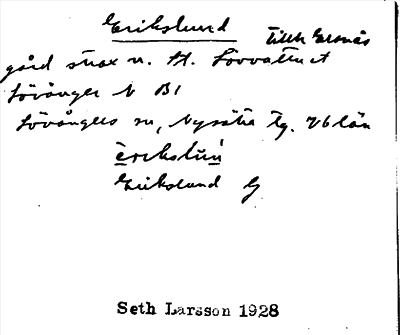 Erikslund tillh Ersnäs
gård strax n. St. Lövvattnet
Lövånger N B1
Lövångers sn, Nysätra tg. Vb län
Erikslund G
Seth Larsson 1928